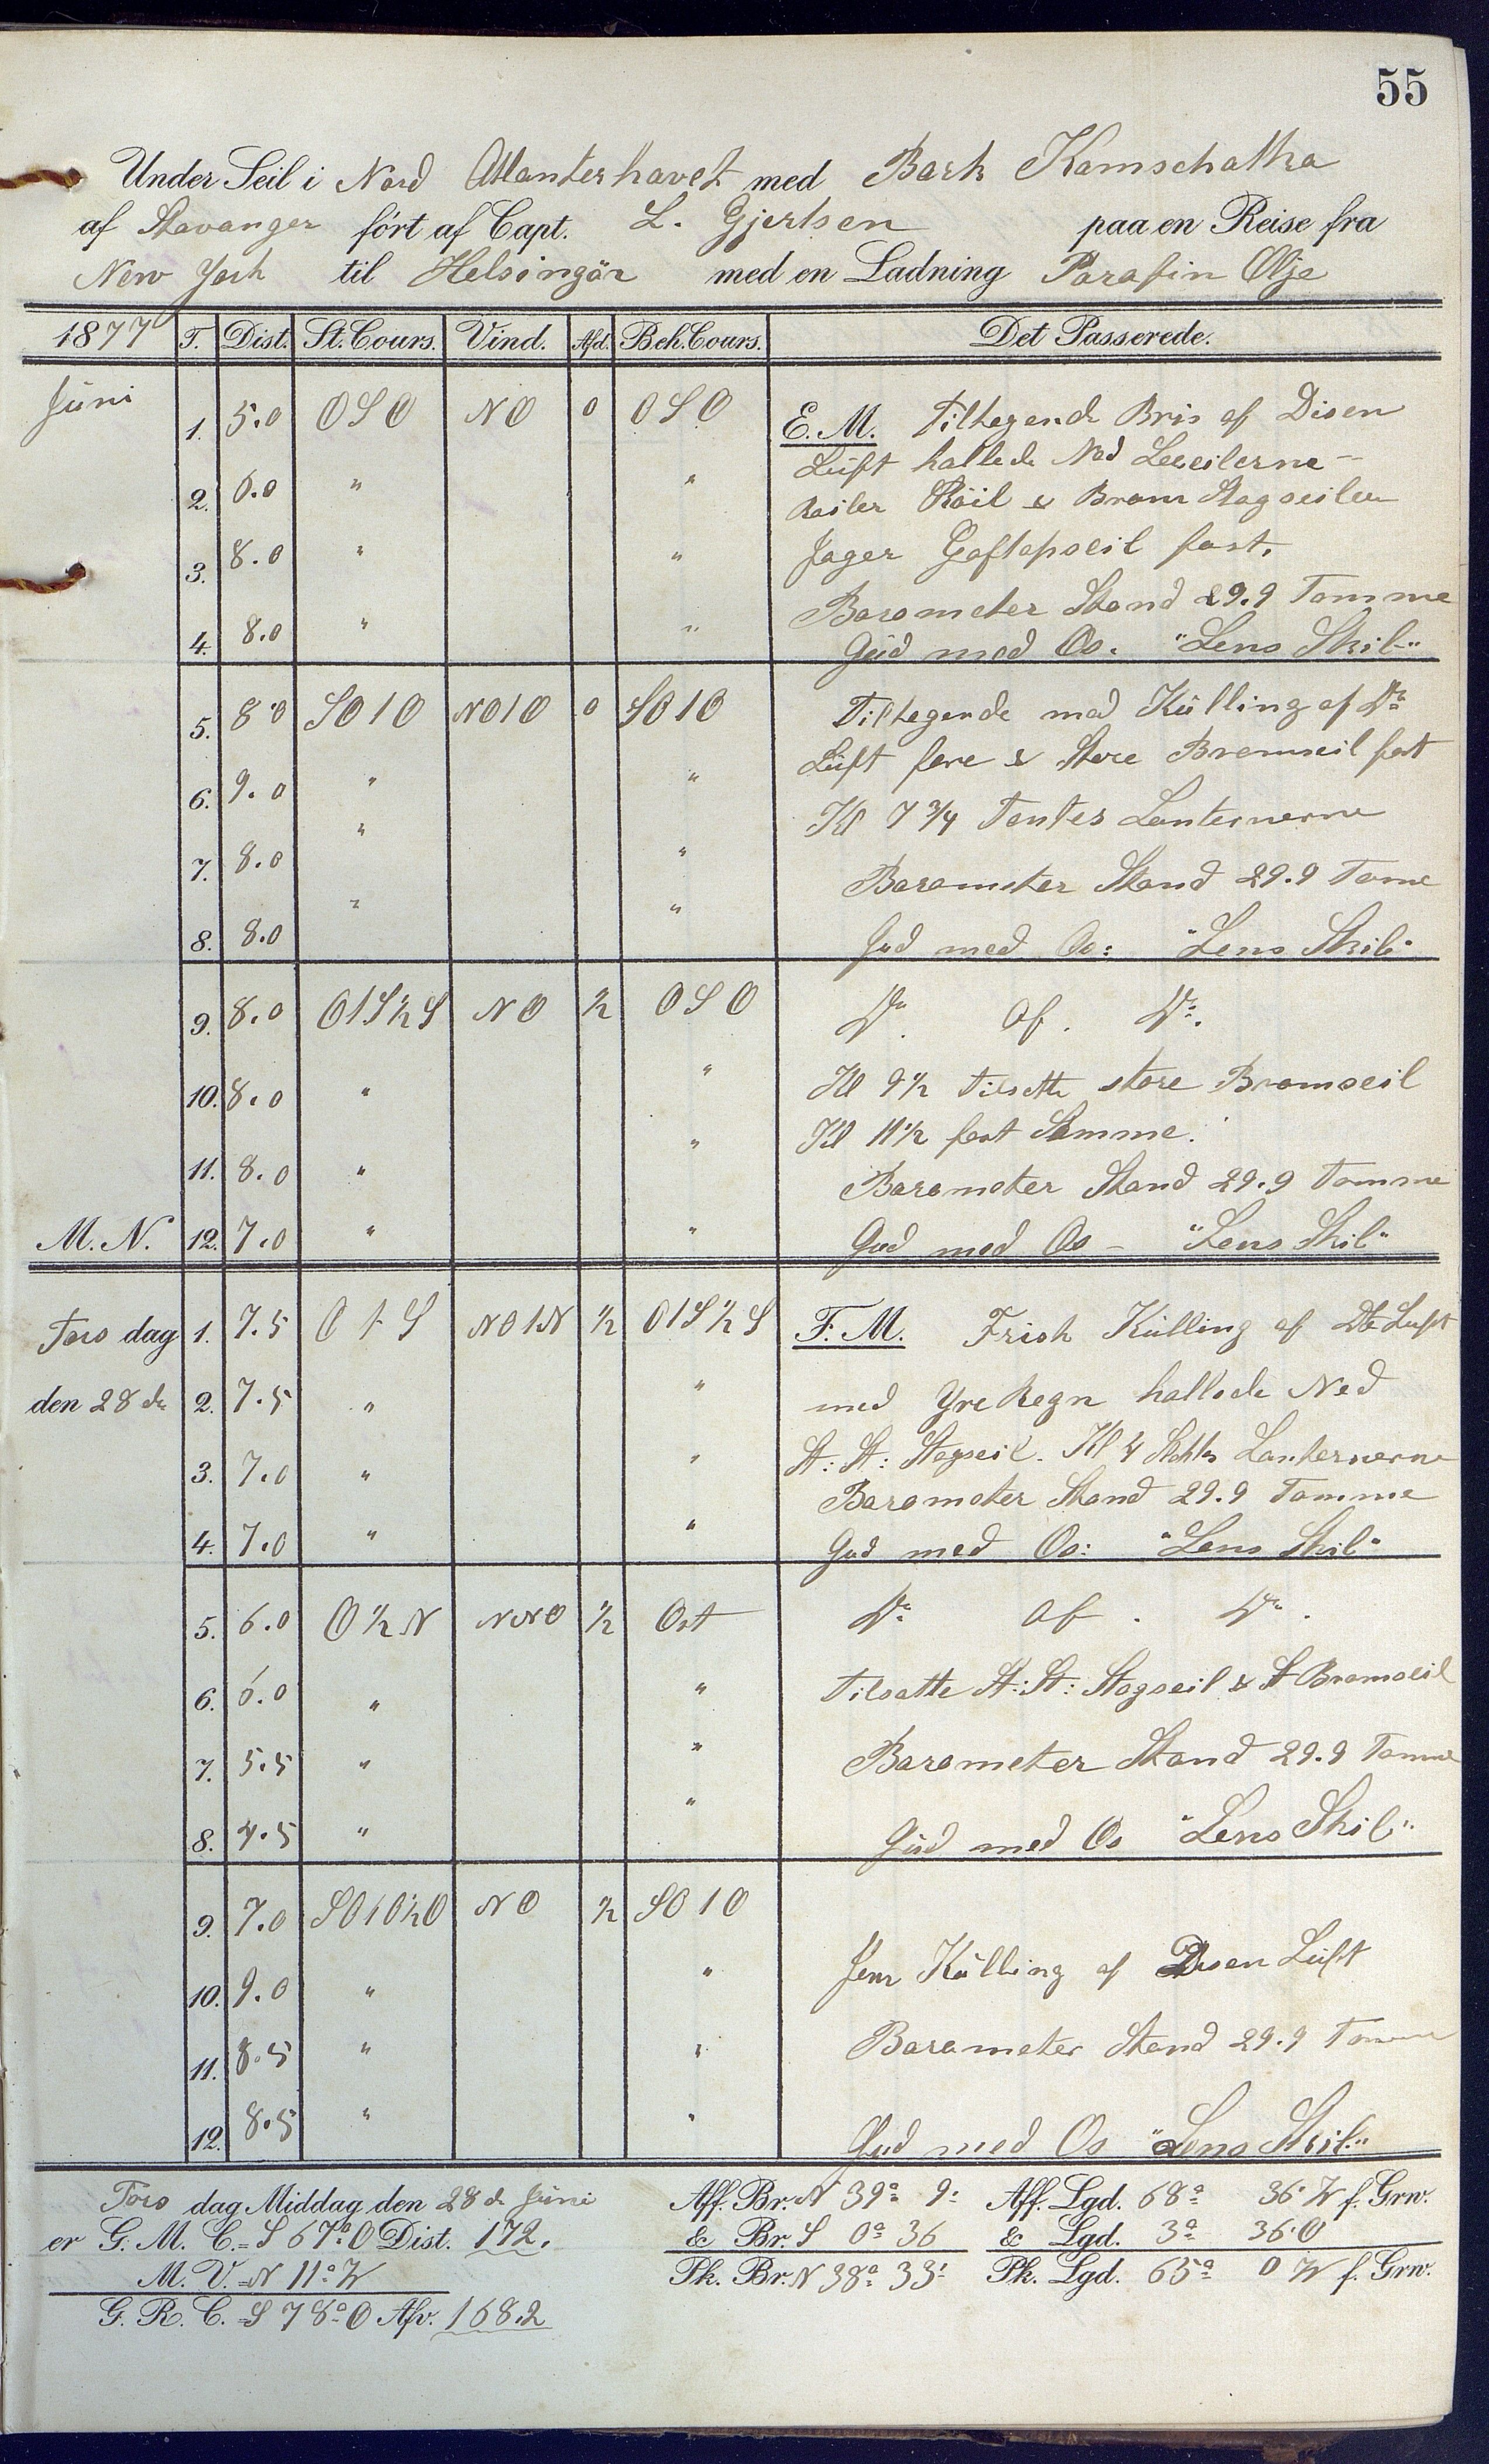 55
Under Seil i Nord Atlanterhavet med Bark Kamschatka
af Stavanger ført af Capt. L. Gjertsen paa en Reise fra
New York til Helsingör med en Ladning Parafin Olje
1877 T. Dist. St. Cours. Vind. Afd. Beh. Cours. Det Passerede.
Juni
1. 5.0 OSO NO 0 OSO E.M. Tiltagende Bris af Disen
Luft hallede Ned Leseilerne -
2. 6.0 " " Røil & Bram Stagseilen
3. 8.0 " " Jager Gaftopseil fast.
Barometer Stand 29.9 Tomme
4. 8.0 " " Gud med Os. "Lens Skib"
5. 8.0 SO1O NO1O 0 SO1O Tiltagende med Kulling af Do
Luft fore & Store Bramseil fast
6. 9.0 " " Kl 7 3/4 Tentes Lanternerne
7. 8.0 " " Barometer Stand 29.9 Tome
8. 8.0 " " Gud med Os: "Lens Skib"
9. 8.0 O1S½S NO ½ OSO Do Af. Do.
10. 8.0 " " Kl 9½ tilsatte store Bramseil
Kl 11½ fast Samme.
11. 8.0 " " Barometer Stand 29.9 Tomme
M.N. 12. 7.0 " " Gud med Os - "Lens Skib"
Torsdag 1. 7.5 O1S NO1N ½ O1S½S F.M. Frisk Kulling af Do Luft
den 28 de 2. 7.5 " " med Yre Regn hallede Ned
3. 7.0 " " St: St: Stagseil. Kl 4 Lanternerne
Barometer Stand 29.9 Tomme
4. 7.0 " " Gud med Os: "Lens Skib"
5. 6.0 O½N NNO ½ Ost Do Af. Do.
6. 6.0 " " Tilsatte St: St: Stagseil & St Bramseil
7. 5.5 " " Barometer Stand 29.9 Tomme
8. 4.5 " " Gud med Os "Lens Skib"
9. 7.0 SO1O½O NO ½ SO1O
10. 9.0 " " Jem Kulling af Disen Luft
11. 8.5 " " Barometer Stand 29.9 Tomme
12. 8.5 " " Gud med Os "Lens Skib"
Torsdag Middag den 28 de Juni Aff. Br. N 39° 9' Aff. Lgd. 68° 36' W f. Grw.
er G. M. C. = S 67° O Dist. 172. & Br. S 0° 36 & Lgd. 3° 36' O
M. V. = N 11° W Pk. Br. N 38° 33' Pk. Lgd. 65° 0 W f. Grw.
G. R. C. = S 78° O Afv. 168.2